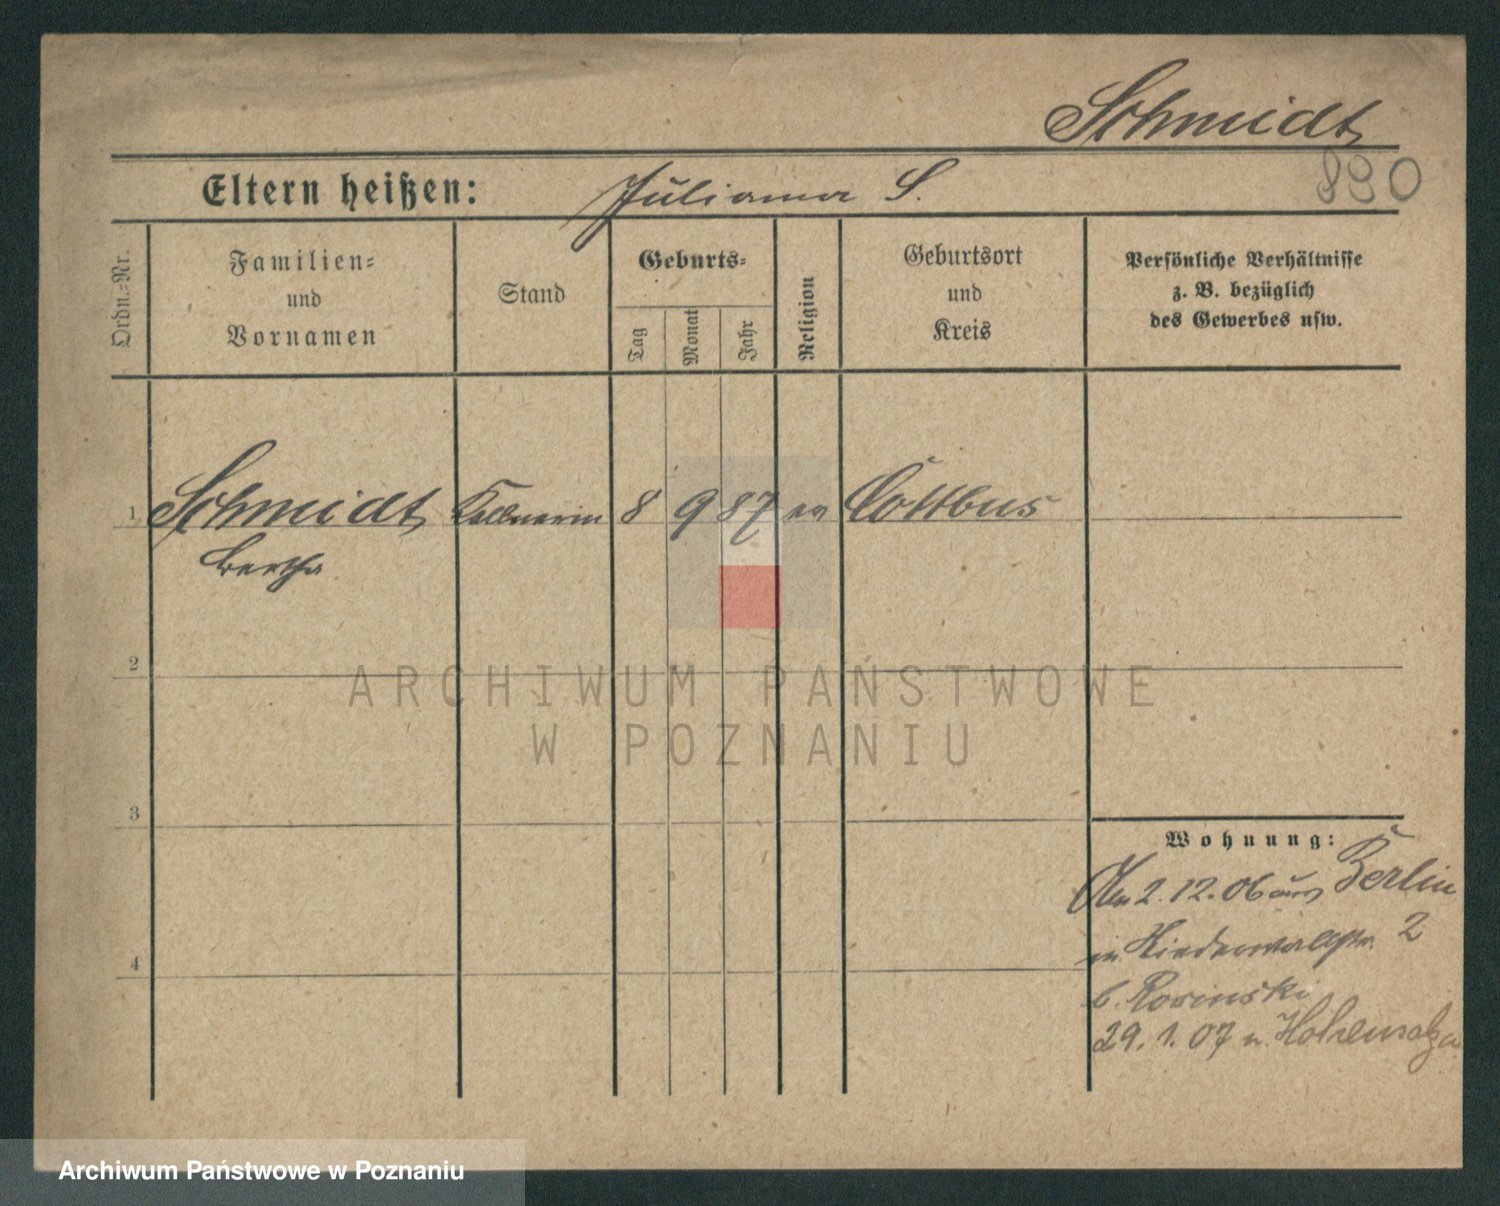 Schmidt
890
Eltern heißen: Juliana S.
Ordn.-Nr.
Familien-
und
Vornamen
Stand
Geburts-
Tag
Monat
Jahr
Religion
Geburtsort
und
Kreis
Persönliche Verhältnisse
z. B. bezüglich
des Gewerbes usw.
1 Schmidt Kellnerin 8 9 87 ev Cottbus
Bertha
2
3
4
Wohnung:
2.12.06 aus Berlin
2
b. Rosinski
29.1.07 n. Hohensalza
ARCHIWUM PAŃSTWOWE
W POZNANIU
Archiwum Państwowe w Poznaniu